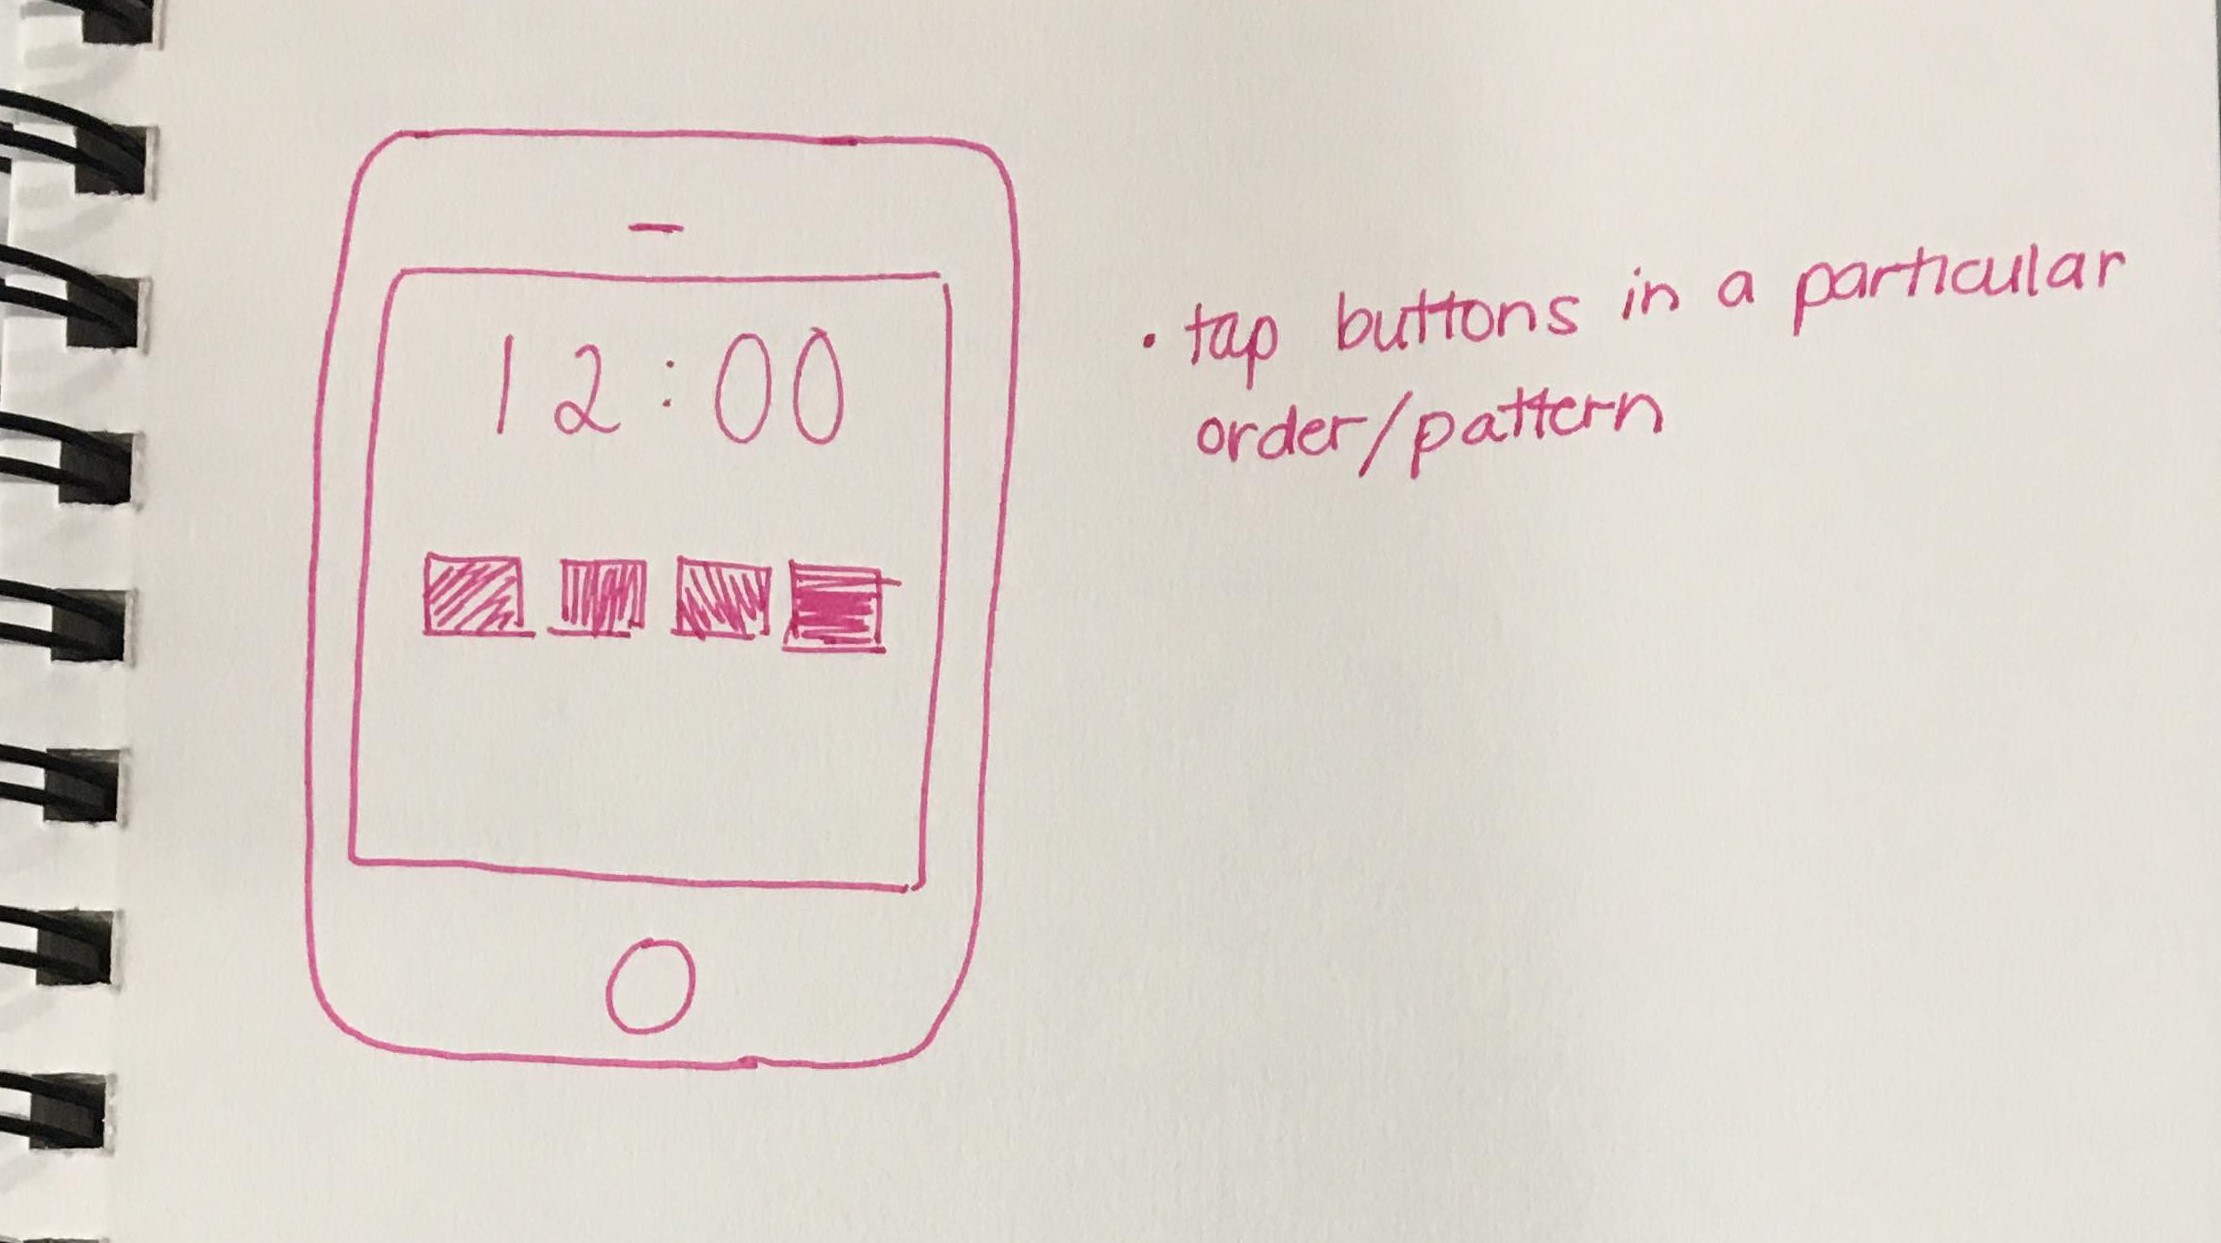 12:00
• tap buttons in a particular
order/pattern